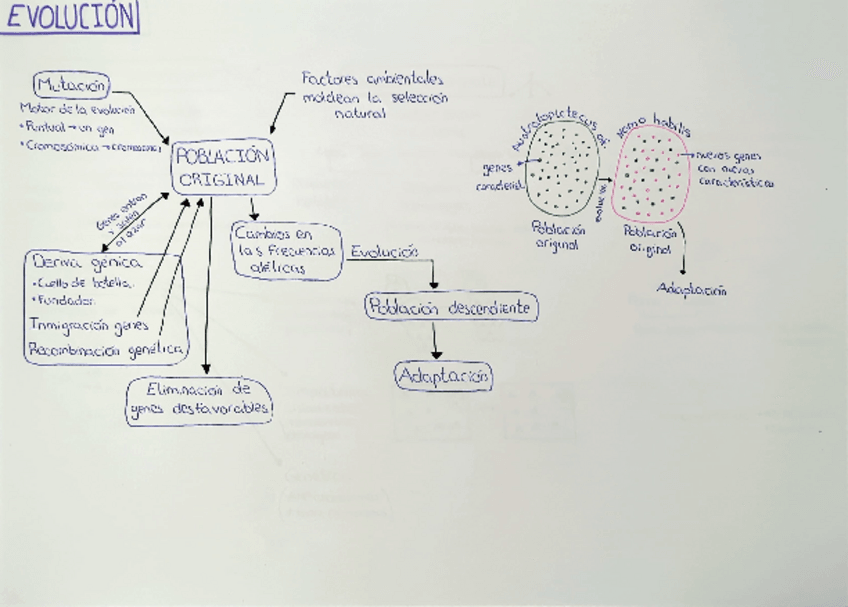 EVOLUCIÓN
Mutación
Motor de la evolución
• Puntual → un gen
• Cromosómica →
Factores ambientales
moldean la selección
natural
POBLACIÓN
ORIGINAL
Genes entran
y salen
al azar
Deriva génica
• Cuello de botella.
• Fundador.
Inmigración genes
Recombinación genética
Cambios en
las frecuencias
alélicas
Evolución
Población descendiente
Adaptación
Eliminación de
genes desfavorables
Homo habilis
genes
nuevos genes
con nuevas
características
Población
original
Población
original
Adaptación